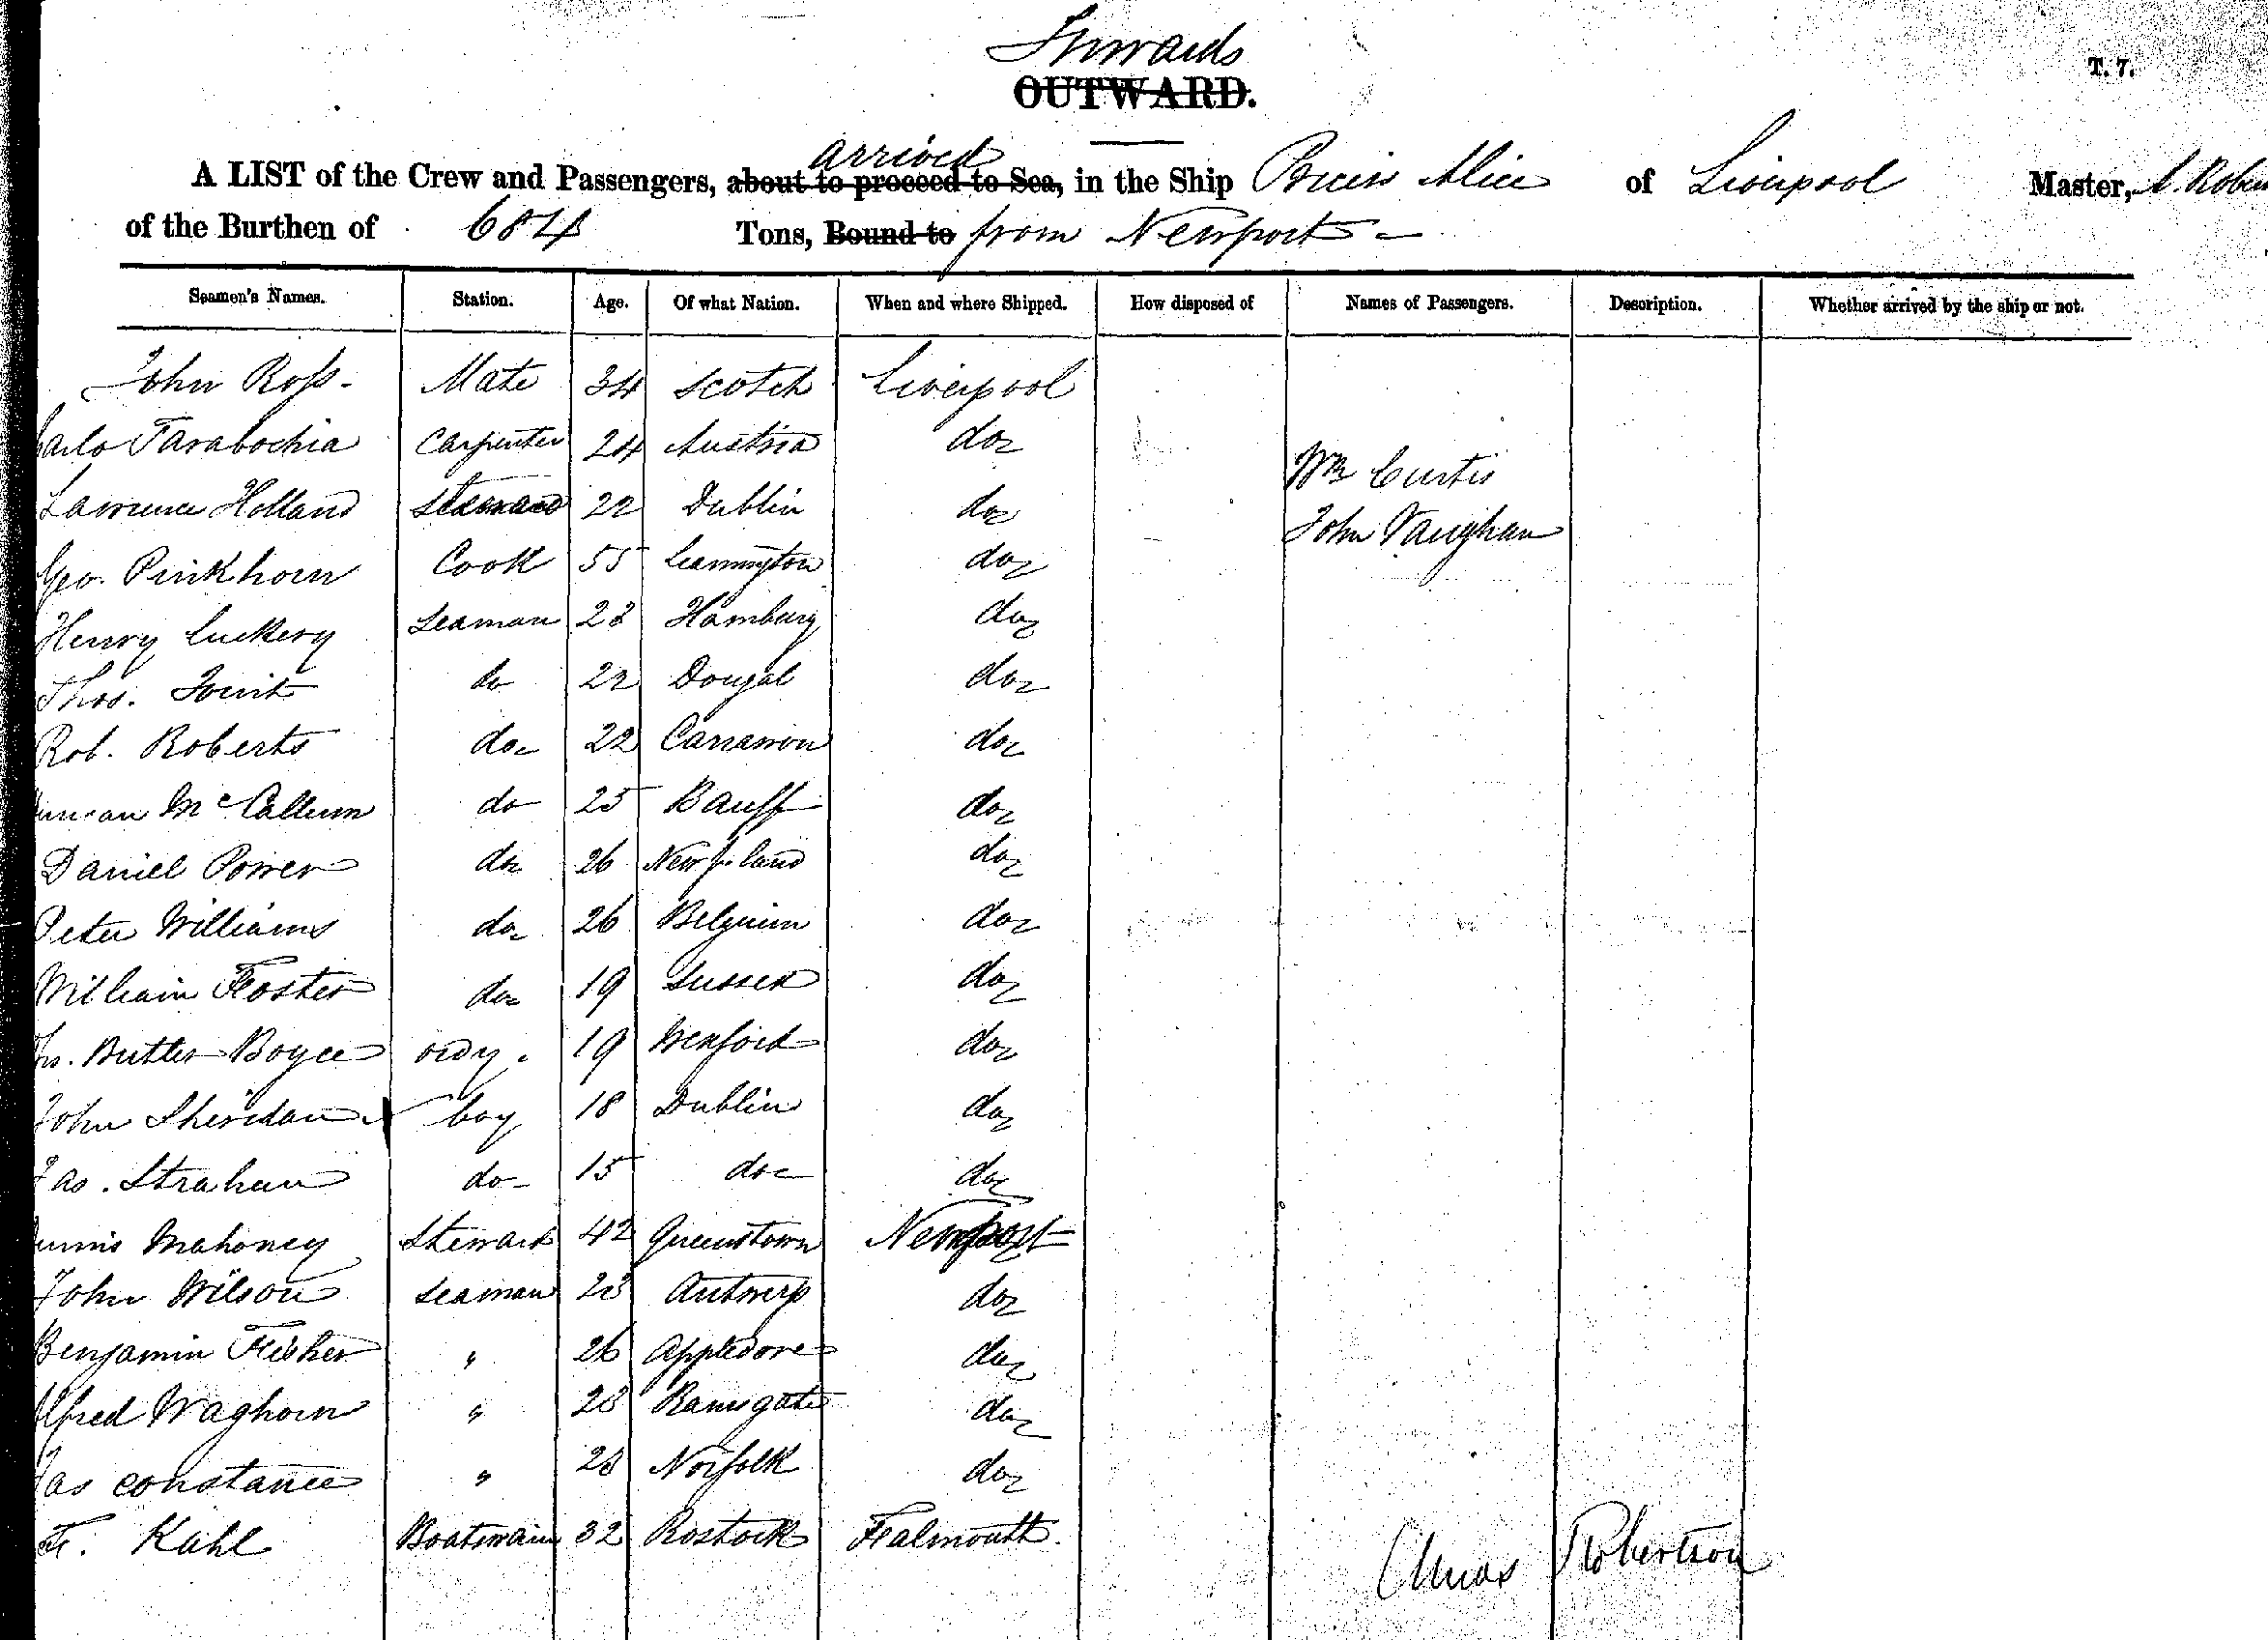 Inwards
OUTWARD.
T. 7.
arrived
A LIST of the Crew and Passengers, about to proceed to Sea, in the Ship Alice of Liverpool Master,
of the Burthen of 684 Tons, Bound to from Newport
Seamen's Names. Station. Age. Of what Nation. When and where Shipped. How disposed of Names of Passengers. Description. Whether arrived by the ship or not.
John Ross Mate 34 Scotch Liverpool
Tarabochia Carpenter 24 Austria do
Wm Curtis
Lawrence Holland 22 Dublin do
John Vaughan
Geo. Pinkhorn Cook 55 Leamington do
Henry Seaman 28 Hamburg do
Thos. do 22 do
Rob. Roberts do 22 do
McCallum do 25 Banff do
Daniel Power do 26 do
Peter Williams do 26 Belgium do
William Foster do 19 Sussex do
Butler Boyce ordy. 19 Wexford do
John Sheridan boy 18 Dublin do
Jas. Strahan do 15 do do
Mahoney Steward 42 Queenstown Newport
John Wilson Seaman 28 Antwerp do
Benjamin Fisher " 26 Appledore do
Alfred Waghorn " 28 Ramsgate do
Jas Constance " 28 Norfolk do
Kahl Boatswain 32 Rostock Falmouth.
Robertson